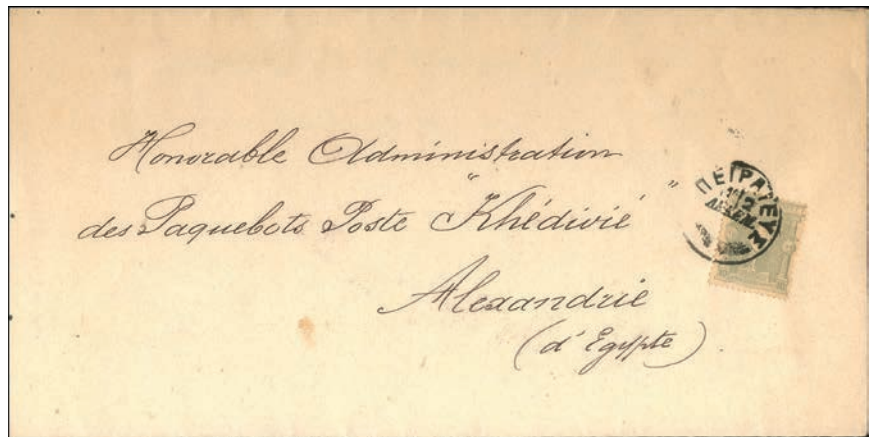 Honorable Administration
des Paquebots Poste "Khédivié"
Alexandrie
(d'Egypte)
ΠΕΙΡΑΙΕΥΣ